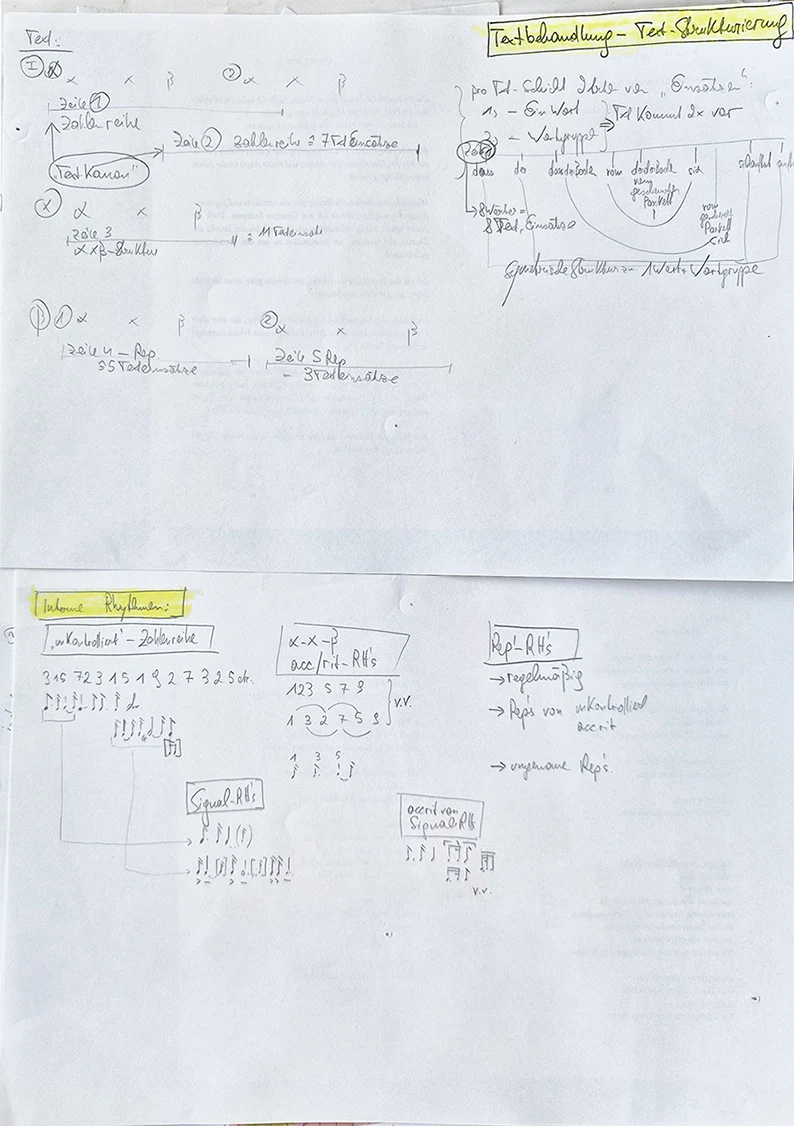 Text:
Textbehandlung – Text-Strukturierung
I
α x β ② α x β
Zeile ①
Zahlenreihe
Zeile ② Zahlenreihe = 7 Texteinsätze
"Text Kanon"
pro Text-Schicht 2 Arten von "Einsätzen":
1, – Ein Wort
2, – Wortgruppe
⇒ Text kommt 2x vor
dass der vom sich
→ 8 Wörter =
8 Text, Einsätze
symetrische Struktur = 1 Wort + Wortgruppe
α x β
Zeile 3
α x β – Struktur = 11 Texteinsätze
β ① α x β ② α x β
Zeile 4 – Rep.
5 Texteinsätze
Zeile 5 Rep
– 3 Texteinsätze
Interne Rhythmen:
"unkontrolliert" – Zahlenreihe
3 1 5 7 2 3 1 5 1 9 2 7 3 2 5 etc.
α-x-β
acc/rit-RH's
1 2 3 5 7 9
1 3 2 7 5 9
v.v.
1 3 5
Rep's-RH's
→ regelmäßig
→ Rep's von unkontrolliert
accrit
→ ungenaue Rep's.
Signal-RH's
accrit von
Signal RH's
v.v.